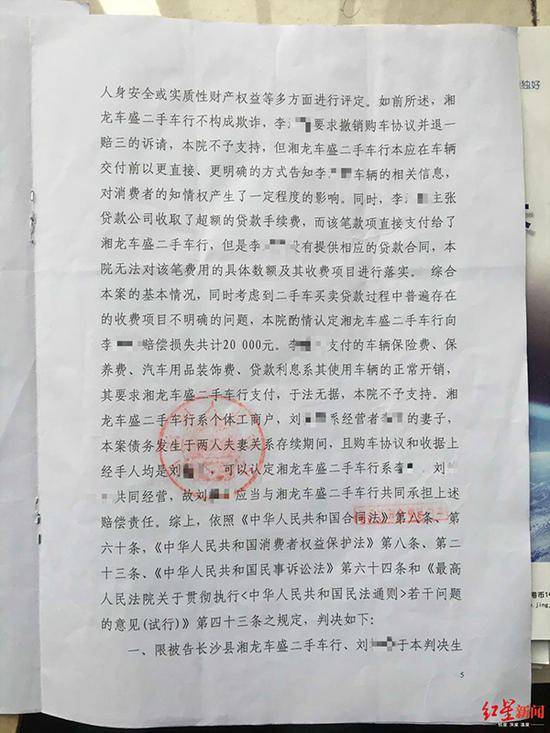 人身安全或实质性财产权益等多方面进行评定。如前所述，湘
龙车盛二手车行不构成欺诈，李 要求撤销购车协议并退一
赔三的诉请，本院不予支持，但湘龙车盛二手车行本应在车辆
交付前以更直接、更明确的方式告知李 车辆的相关信息，
对消费者的知情权产生了一定程度的影响。同时，李 主张
贷款公司收取了超额的贷款手续费，而该笔款项直接支付给了
湘龙车盛二手车行，但是李 没有提供相应的贷款合同，本
院无法对该笔费用的具体数额及其收费项目进行落实。 综合
本案的基本情况，同时考虑到二手车买卖贷款过程中普遍存在
的收费项目不明确的问题，本院酌情认定湘龙车盛二手车行向
李 赔偿损失共计20 000元。李 支付的车辆保险费、保
养费、汽车用品装饰费、贷款利息系其使用车辆的正常开销，
其要求湘龙车盛二手车行支付，于法无据，本院不予支持。湘
龙车盛二手车行系个体工商户，刘 系经营者 的妻子，
本案债务发生于两人夫妻关系存续期间，且购车协议和收据上
经手人均是刘 ，可以认定湘龙车盛二手车行系 、刘
共同经营，故刘 应当与湘龙车盛二手车行共同承担上述
赔偿责任。综上，依照《中华人民共和国合同法》第八条、第
六十条，《中华人民共和国消费者权益保护法》第八条、第二
十三条、《中华人民共和国民事诉讼法》第六十四条和《最高
人民法院关于贯彻执行<中华人民共和国民法通则>若干问题
的意见(试行)》第四十三条之规定，判决如下：
一、限被告长沙县湘龙车盛二手车行、刘 于本判决生
5
独好
红星新闻